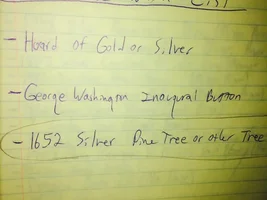 - Hoard of Gold or Silver
- George Washington Inaugural Button
- 1652 Silver Pine Tree or other Tree